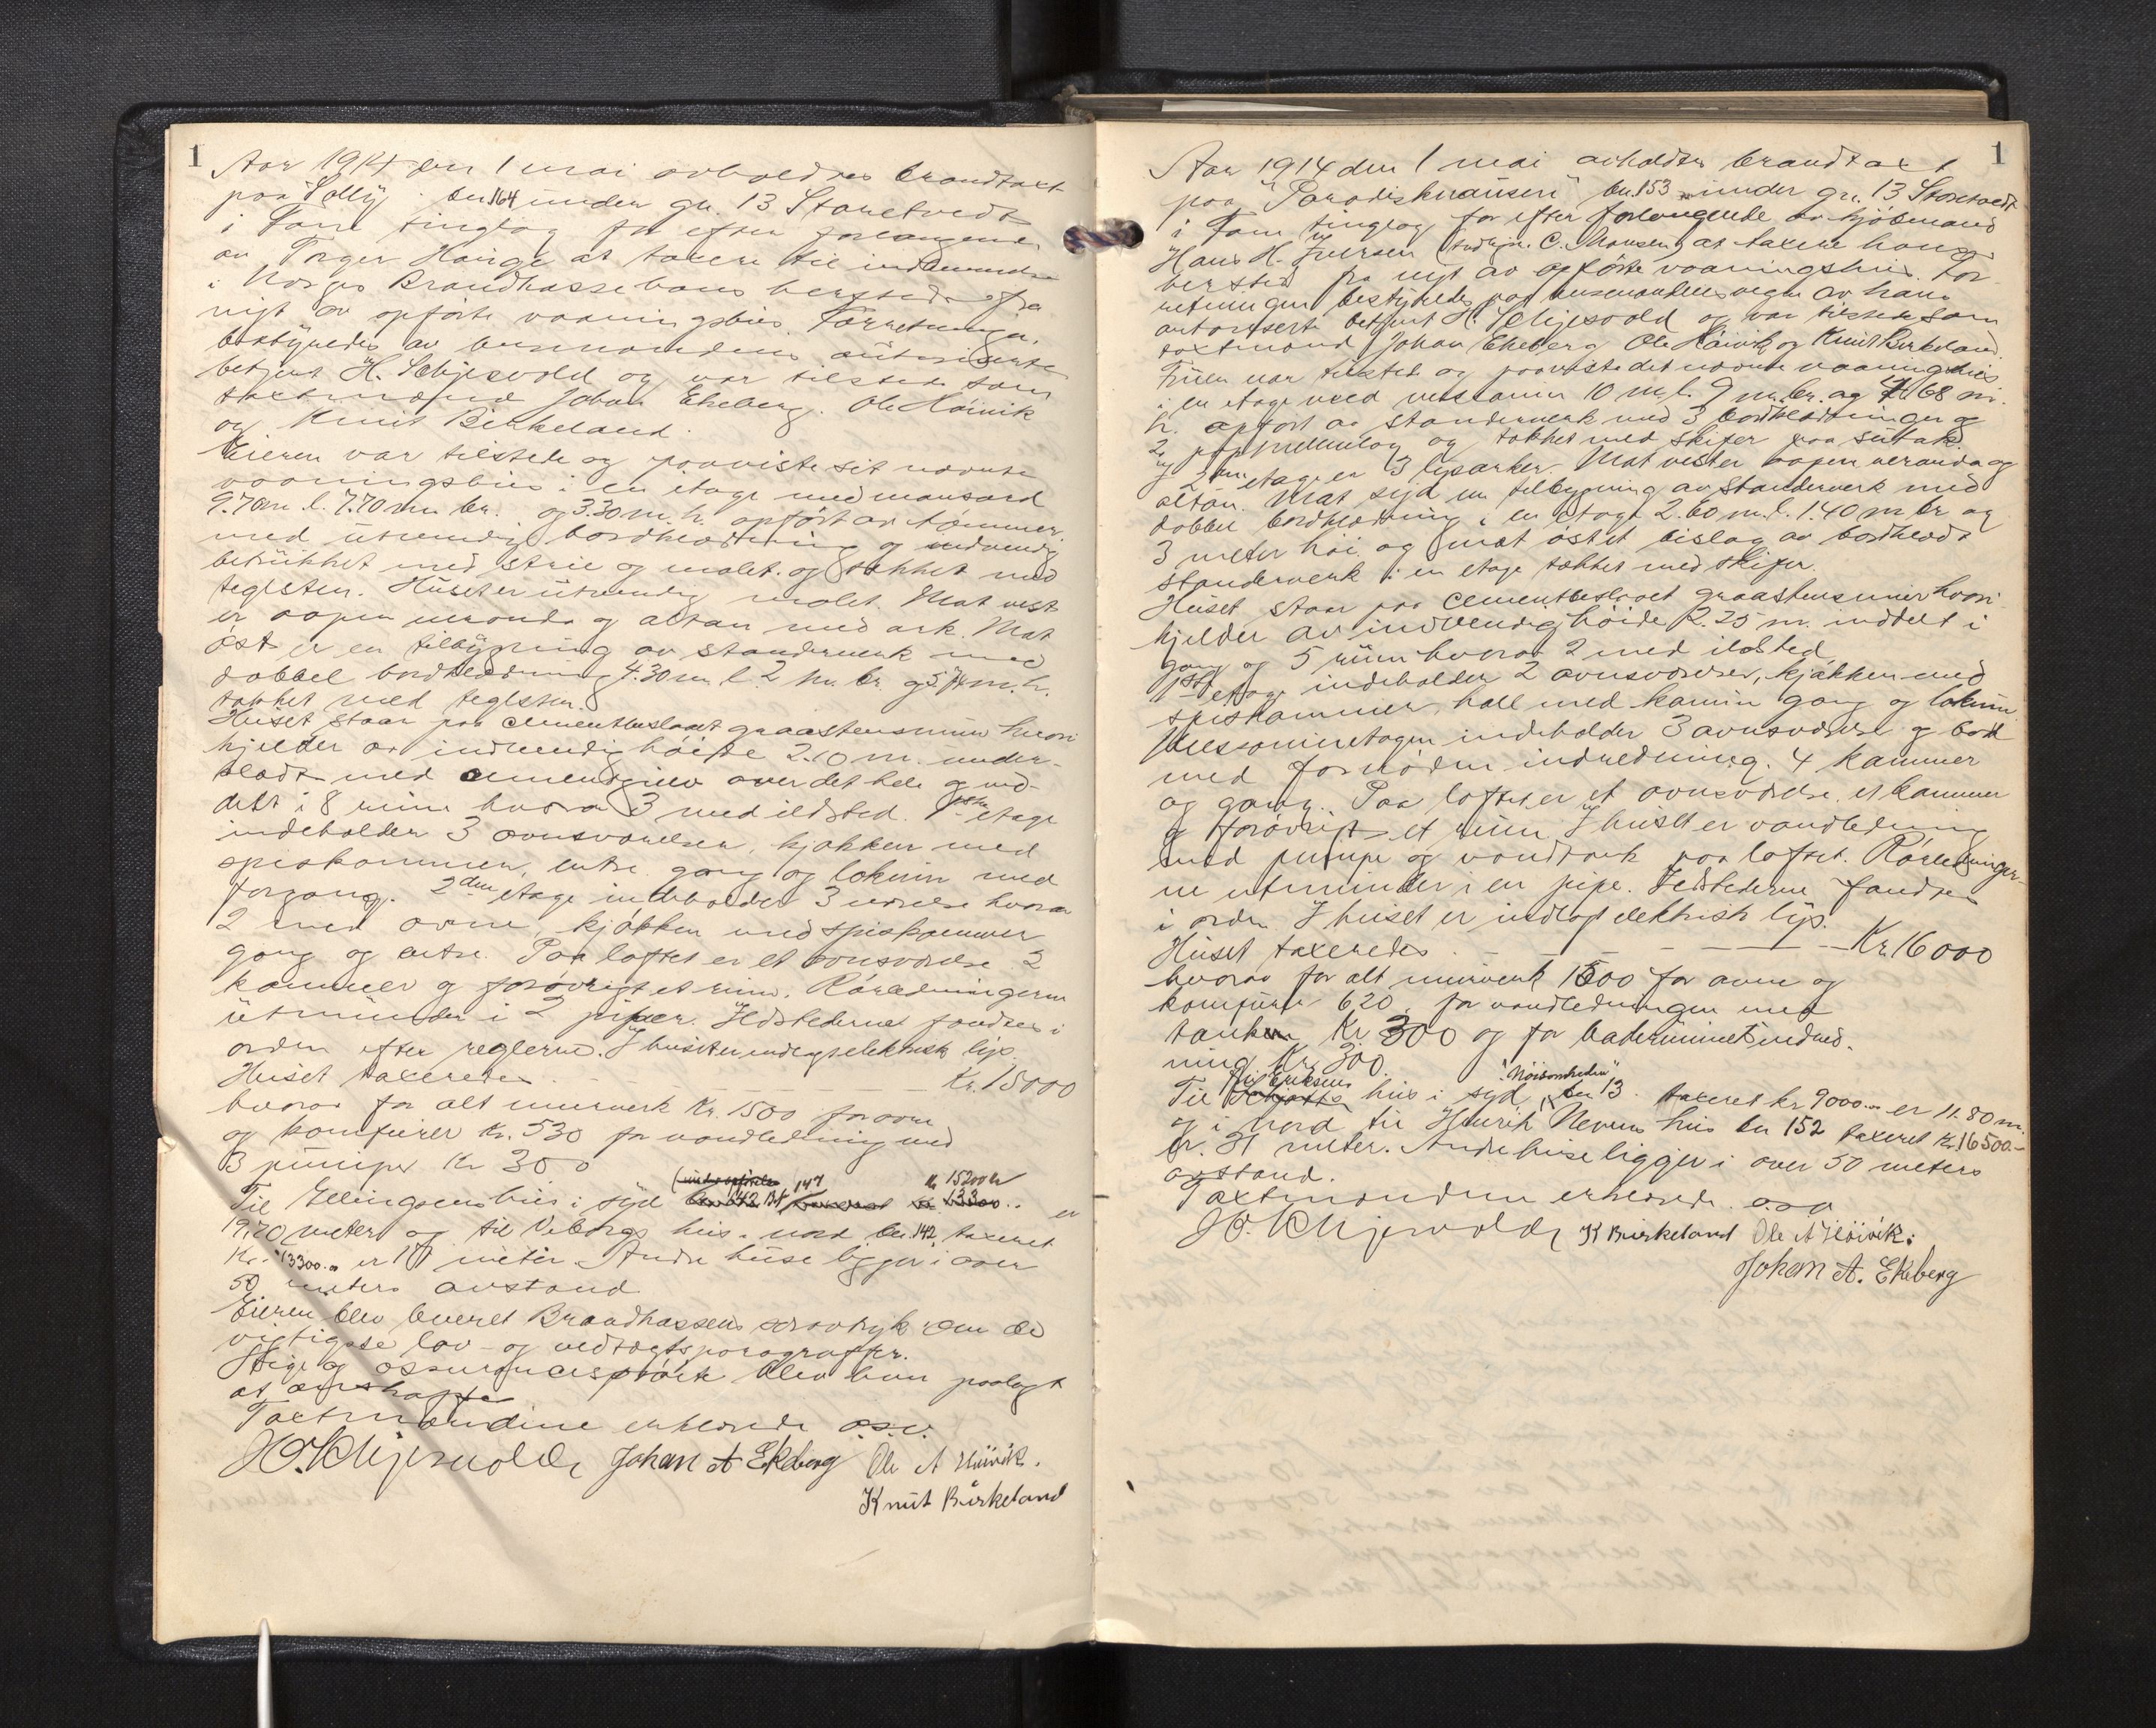 1
Aar 1914 den 1 mai avholdtes brandtaxt
paa "Solly" bn 164 under gr. 13 Storetvedt
i Fane tinglag for efter forlangende
av Torger Hauge at taxere til indlemmelse
i Norges Brandkasse hans hersteds fra
nyt av opførte vaaningshus. Forretningen
bestyredes av lensmandens autoriserte
betjent H. Schjesvold og var tilstede som
taxtmænd Johan Ekeberg, Ole Høivik
og Knut Birkeland.
Eieren var tilstede og paaviste sit nævnte
vaaningshus i en etage med mansard
9.70 m l. 7.70 m br. og 3.30 m. h. opført av tømmer
med utvendig bordklædning og indvendig
betrukket med strie og malet og tækket med
teglsten. Huset er utvendig malet. Mot vest
er aapen veranda og altan med ark. Mot
øst er en tilbygning av standerverk med
dobbel bordklædning 4.30 m l. 2 m. br. og m. h.
tækket med teglsten.
Huset staar paa cementbeslaaet graastensmur hvori
kjelder av indvendig høide 2.10 m. under
med cementgulv over det hele og ind-
delt i 8 rum hvorav 3 med ildsted. 1ste etage
indeholder 3 ovnsværelser, kjøkken med
spiskammer, entre gang og lokum med
forgang. 2den etage indeholder 3 værelser hvorav
2 med ovne, kjøkken med spiskammer
gang og entre. Paa loftet er et ovnsværelse 2
kammer og forøvrigt et rum. Rørledningerne
utmunder i 2 piper. Ildstederne fandtes i
orden efter reglerne. I huset er indlagt elektrisk lys.
Huset taxeredes - - - - Kr. 15000
hvorav for alt murverk Kr. 1500 for ovne
og komfurer Kr. 530 for vandledning med
3 pumper Kr 300
Til Ellingsens hus i syd 147 kr 15200 er
19.70 meter og til Viborgs hus i nord bn. 142, taxeret
Kr. 13300.- er 17 meter. Andre huse ligger i over
50 meters avstand.
Eieren blev leveret Brandkassens særtryk om de
vigtigste lov- og vedtægtsparagraffer.
Stige og assurancesprøite blev han paalagt
at anskaffe
Taxtmændene erklærede o.s.v.
H. Schjesvold, Johan A Ekeberg Ole A Høivik.
Knut Birkeland
1
Aar 1914 den 1 mai avholdtes brandtaxt
paa "Paradisknausen" bn. 153 under gr. 13 Storetvedt
i Fane tinglag for efter forlangende av kjøbmand
Hans H. Iversen (indehr. C. Monsen) at taxere hans
hersted fra nyt av opførte vaaningshus. For-
retningen bestyredes paa lensmandens vegne av hans
autoriserte betjent H. Schjesvold og var tilstede som
taxtmænd Johan Ekeberg Ole Høivik og Knut Birkeland.
Fruen var tilstede og paaviste det nævnte vaaningshus
i en etage med mesanin 10 m. l. 9 m. br. og 68 m.
h. opført av standerverk med 3 bordklædninger og
2 papmellemlag og tækket med skifer paa sutak.
I 2den etage er 3 lysarker. Mot vester aapen veranda og
altan. Mot syd en tilbygning av standerverk med
dobbel bordklædning i en etage 2.60 m. l. 1.40 m br og
3 meter høi og mot østet bislag av bordklædt
standerverk i en etage tækket med skifer.
Huset staar paa cementbeslaaet graastensmur hvori
kjelder av indvendig høide 2.25 m. inddelt i
gang og 5 rum hvorav 2 med ildsted
1ste etage indeholder 2 ovnsværelser, kjøkken med
spiskammer, hall med kamin gang og lokum
Messaninetagen indeholder 3 ovnsværelser og bad
med fornøden indredning. 4 kammer
og gang. Paa loftet er et ovnsværelse, et kammer
og forøvrigt et rum. I huset er vandledning
med pumpe og vandtank paa loftet. Rørledninger-
ne utmunder i en pipe. Ildstederne fandtes
i orden. I huset er indlagt elektrisk lys.
Huset taxeredes - - - - Kr. 16000
hvorav for alt murverk 1500 for ovne og
komfurer 620, for vandledningen med
tanken Kr 300 og for baderummets indred-
ning Kr. 300.
Til Eriksens hus i syd "Nøisomheden" bn 13 taxeret kr 9000.- er 11.80 m.
og i nord til Henrik Nevens hus bn 152 taxeret Kr. 16500.-
er 21 meter. Andre huse ligger i over 50 meters
avstand.
Taxtmændene erklærede o.s.v.
H. Schjesvold, K Birkeland Ole A Høivik.
Johan A. Ekeberg